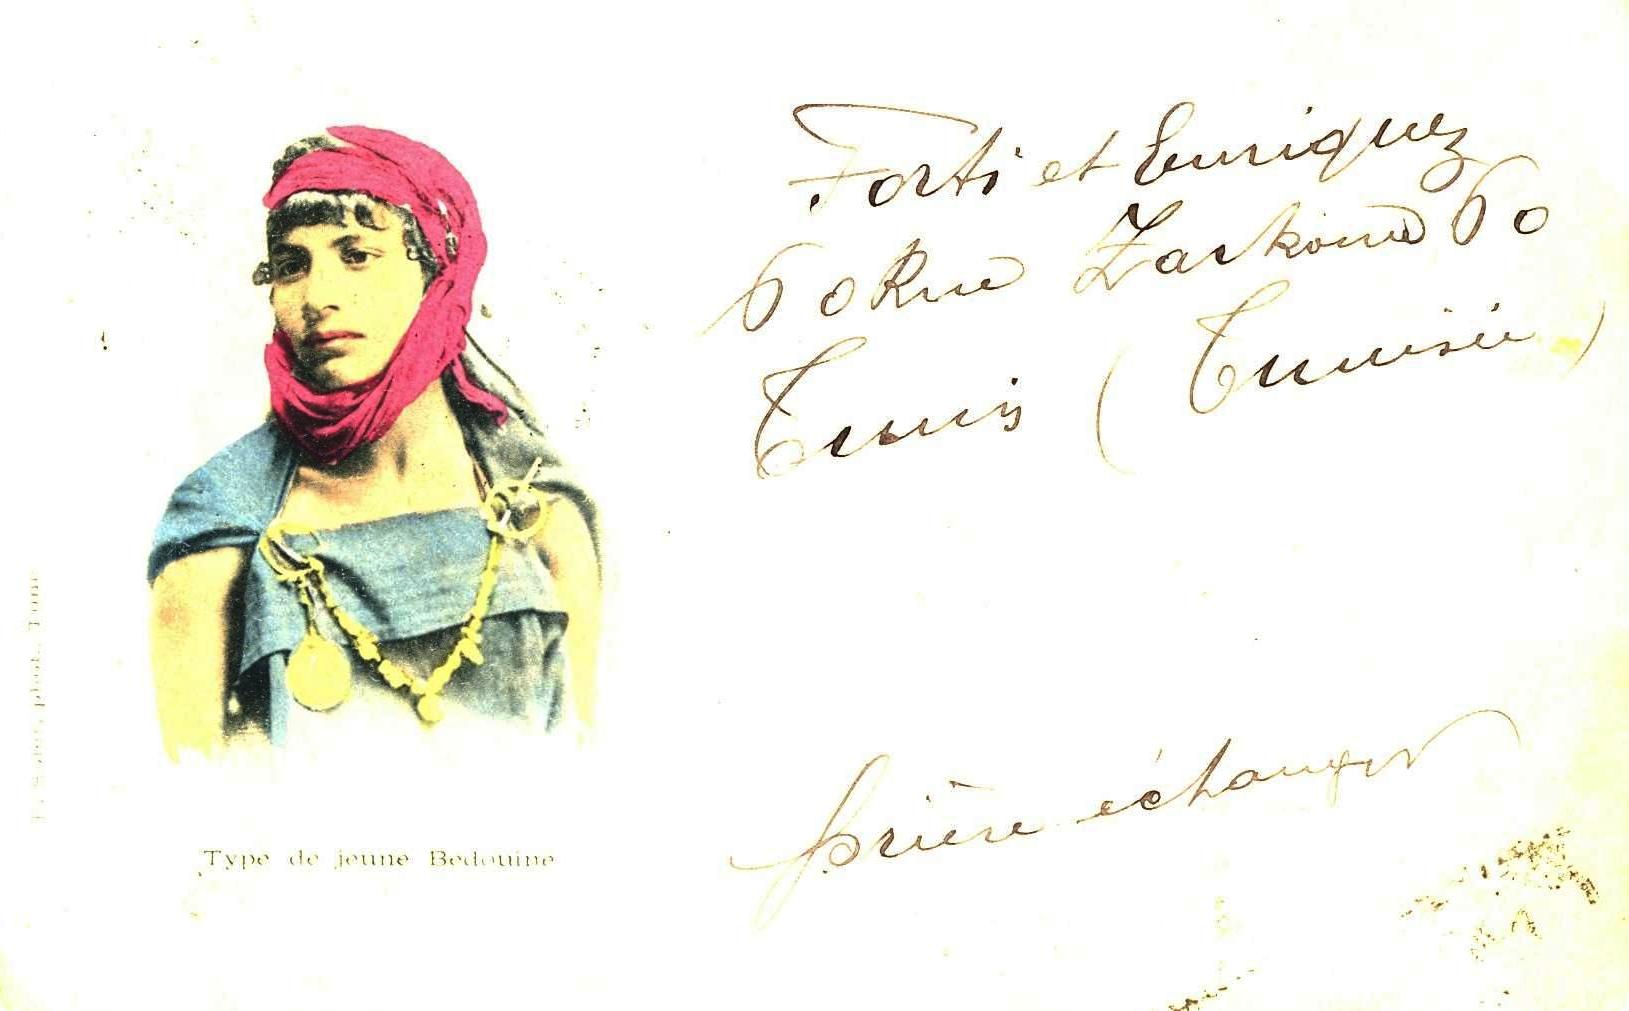 Forti et Enriquez
60 Rue Zarkoun 60
Tunis (Tunisie)
prière échanger
Type de jeune Bedouine
phot., Tunis